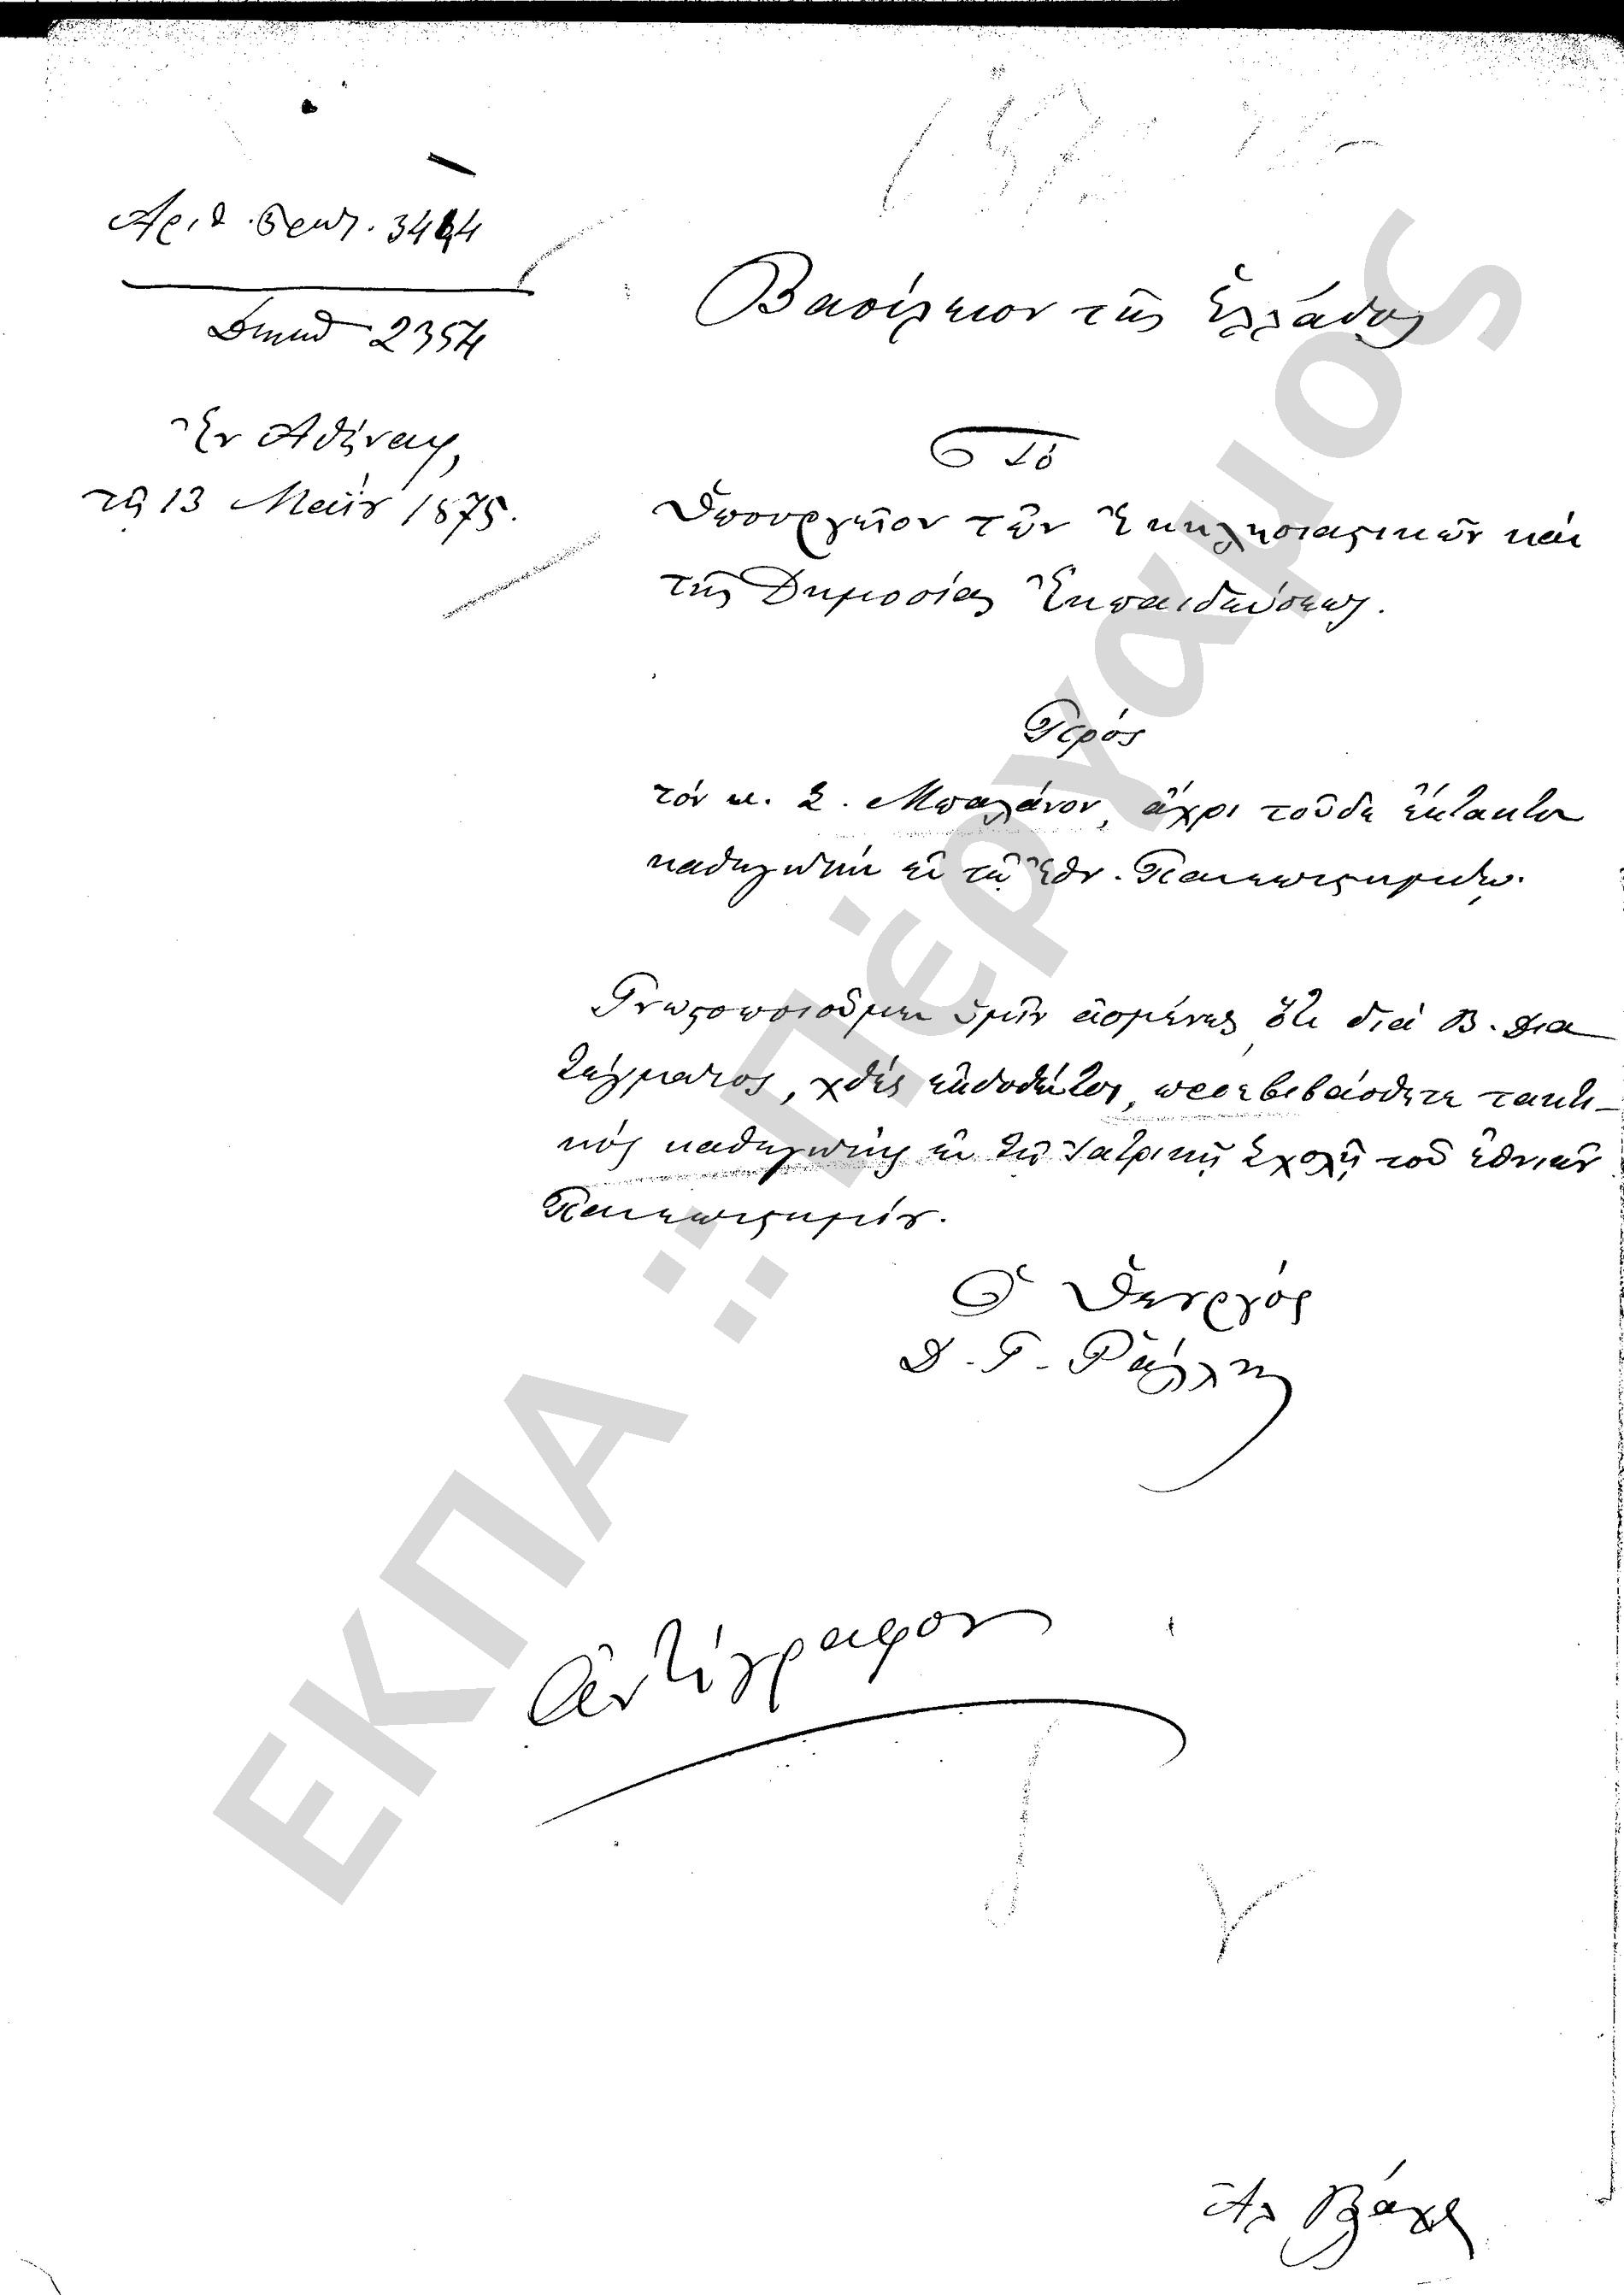 Ἀριθ. Πρωτ. 3414
Διεκπ 2354
Ἐν Ἀθήναις,
τῇ 13 Μαΐου 1875.
Βασίλειον τῆς Ἑλλάδος
Τό
Ὑπουργεῖον τῶν Ἐκκλησιαστικῶν καί
τῆς Δημοσίας Ἐκπαιδεύσεως.
Πρός
τόν κ. Σ. Μπαλάνον, ἄχρι τοῦδε ἔκτακτον
καθηγητήν ἐν τῷ Ἐθν. Πανεπιστημίῳ.
Γνωστοποιοῦμεν ὑμῖν ἀσμένως ὅτι διά Β. Δια
τάγματος, χθές ἐκδοθέντος, προεβιβάσθητε τακτι-
κός καθηγητής ἐν τῇ Ἰατρικῇ Σχολῇ τοῦ Ἐθνικοῦ
Πανεπιστημίου.
Ὁ Ὑπουργός
Δ. Γ. Ράλλης
Ἀντίγραφον
ΕΚΠΑ :: Πέργαμος